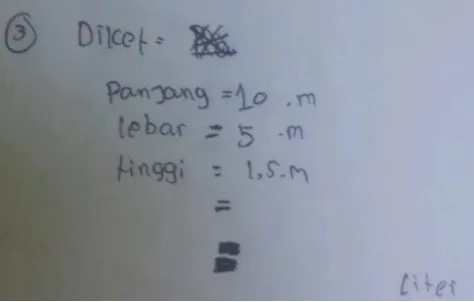 ③ Diket =
Panjang = 10 .m
lebar = 5 .m
tinggi = 1,5.m
=
Liter